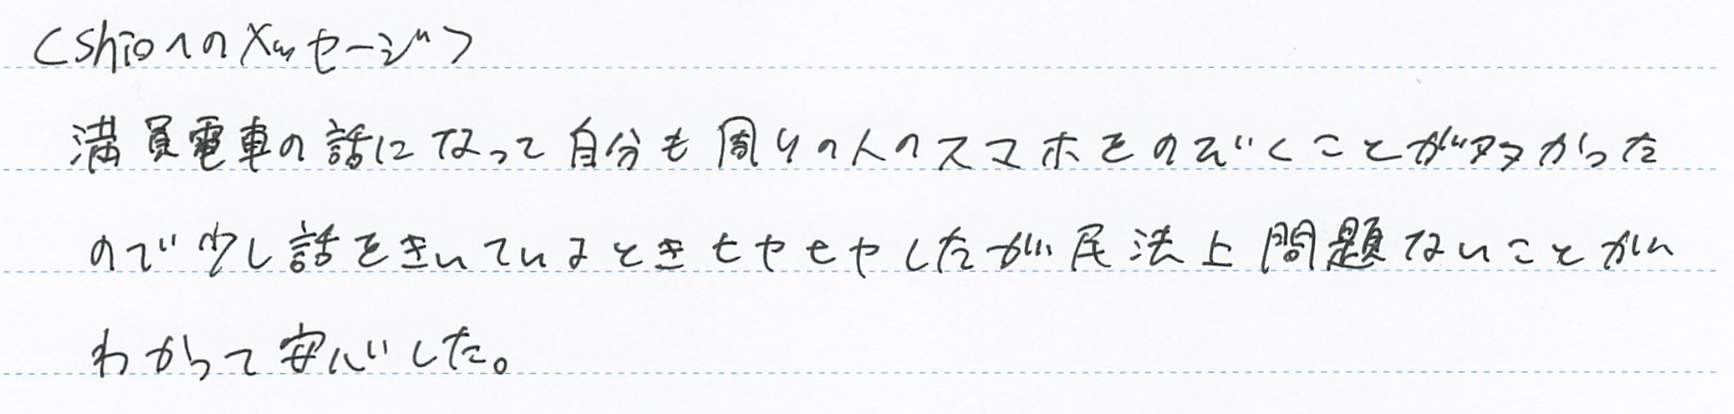 <shioへのメッセージ>
満員電車の話になって自分も周りの人のスマホをのぞくことが多かった
ので少し話をきいているときモヤモヤしたが民法上問題ないことが
わかって安心した。